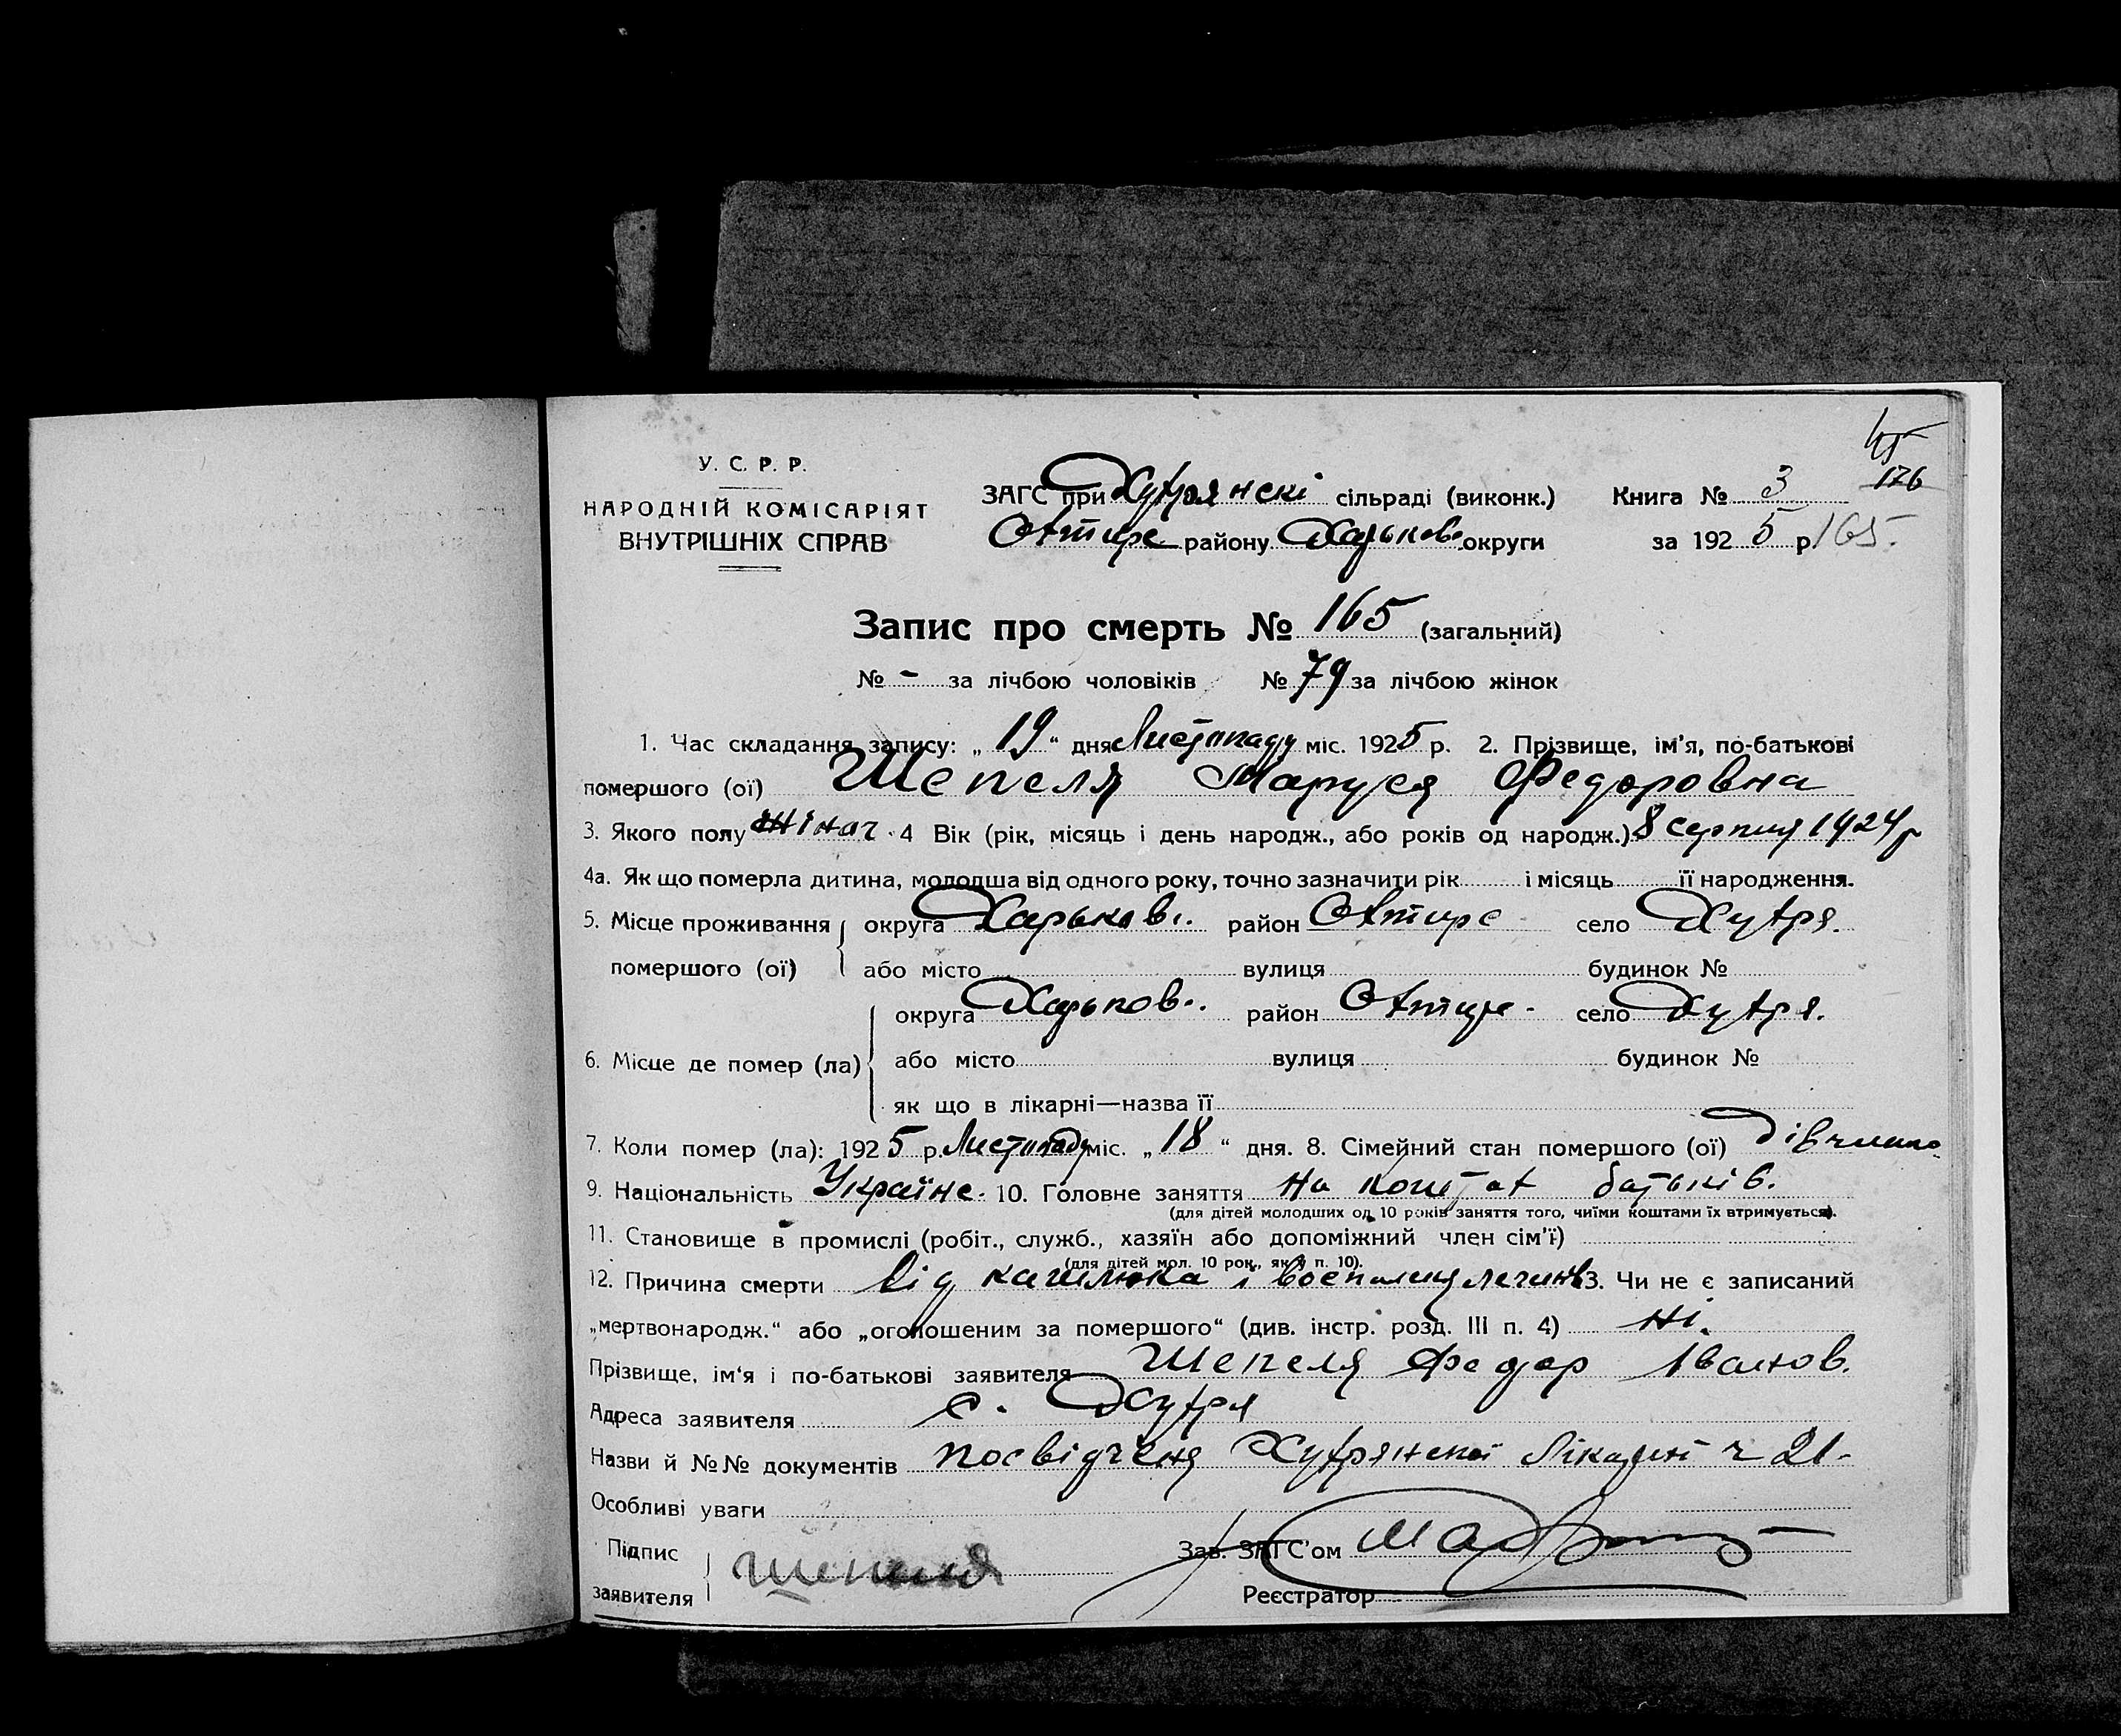 45
176
У. С. Р. Р.
НАРОДНІЙ КОМІСАРІЯТ
ВНУТРІШНІХ СПРАВ
ЗАГС при Хутрянскі сільраді (виконк.) Книга № 3
району Харьков. округи за 1925 р. 165.
Запис про смерть № 165 (загальний)
№ - за лічбою чоловіків № 79 за лічбою жінок
1. Час складання запису: „ 19 “ дня Листопаду міс. 1925 р. 2. Прізвище, ім'я, по-батькові
помершого (ої) Шепеля Маруся Федоровна
3. Якого полу 4 Вік (рік, місяць і день народж., або років од народж.) 8 серпня 1924 р
4а. Як що померла дитина, молодша від одного року, точно зазначити рік і місяць її народження.
5. Місце проживання округа Харьков. район село Хутря.
помершого (ої) або місто вулиця будинок №
округа Харьков. район село Хутря.
6. Місце де помер (ла) або місто вулиця будинок №
як що в лікарні—назва її
7. Коли помер (ла): 1925 р. Листопаду міс. „ 18 “ дня. 8. Сімейний стан помершого (ої) дівчина
9. Національність Україне. 10. Головне заняття на кошtaх батьків.
(для дітей молодших од 10 років заняття того, чиїми коштами їх втримується).
11. Становище в промислі (робіт., служб., хазяїн або допоміжний член сім'ї)
(для дітей мол. 10 рок., як в п. 10).
12. Причина смерти від кашлюка і воспаления легких 13. Чи не є записаний
„мертвонародж.“ або „оголошеним за помершого“ (див. інстр. розд. III п. 4) Ні.
Прізвище, ім'я і по-батькові заявителя Шепеля Федор Іванов.
Адреса заявителя с. Хутря
Назви й №№ документів посвідченя Хутрянскої Лікарні ч 21-
Особливі уваги
Підпис
заявителя Шепеля
Зав. ЗАГС'ом
Реєстратор